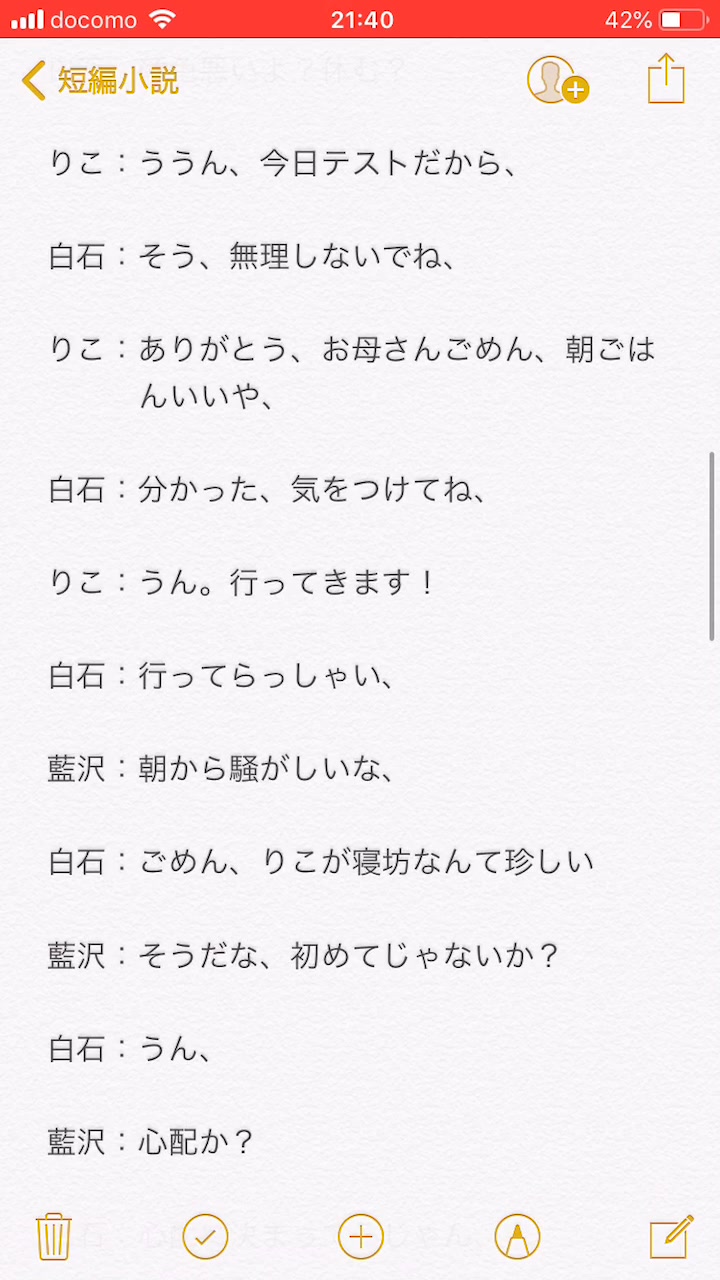 docomo 21:40 42%
短編小説
りこ：ううん、今日テストだから、
白石：そう、無理しないでね、
りこ：ありがとう、お母さんごめん、朝ごは
んいいや、
白石：分かった、気をつけてね、
りこ：うん。行ってきます！
白石：行ってらっしゃい、
藍沢：朝から騒がしいな、
白石：ごめん、りこが寝坊なんて珍しい
藍沢：そうだな、初めてじゃないか？
白石：うん、
藍沢：心配か？